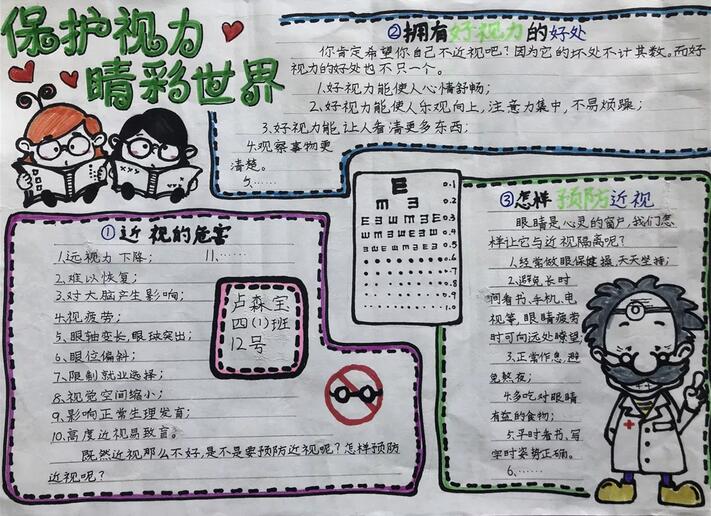 保护视力
睛彩世界
②拥有好视力的好处
你肯定希望你自己不近视吧?因为它的坏处不计其数。而好
视力的好处也不只一个。
1.好视力能使人心情舒畅;
2.好视力能使人乐观向上,注意力集中,不易烦躁;
3.好视力能让人看清更多东西;
4.观察事物更
清楚。
5.……
①近视的危害
1.远视力下降; 11.……
2.难以恢复;
3.对大脑产生影响;
4.视疲劳;
5.眼轴变长,眼球突出;
6.眼位偏斜;
7.限制就业选择;
8.视觉空间缩小;
9.影响正常生理发育;
10.高度近视易致盲。
既然近视那么不好,是不是要预防近视呢?怎样预防
近视呢?
卢森宝
四(1)班
12号
E 0.1
m ∃ 0.2
E m 0.3
0.4
0.5
0.6
0.7
0.8
0.9
1.0
③怎样预防近视
眼睛是心灵的窗户,我们怎
样让它与近视隔离呢?
1.经常做眼保健操,天天坚持;
2.避免长时
间看书、手机、电
视等,眼睛疲劳
时可向远处瞭望;
3.正常作息,避
免熬夜;
4.多吃对眼睛
有益的食物;
5.平时看书、写
字时姿势正确。
6.……